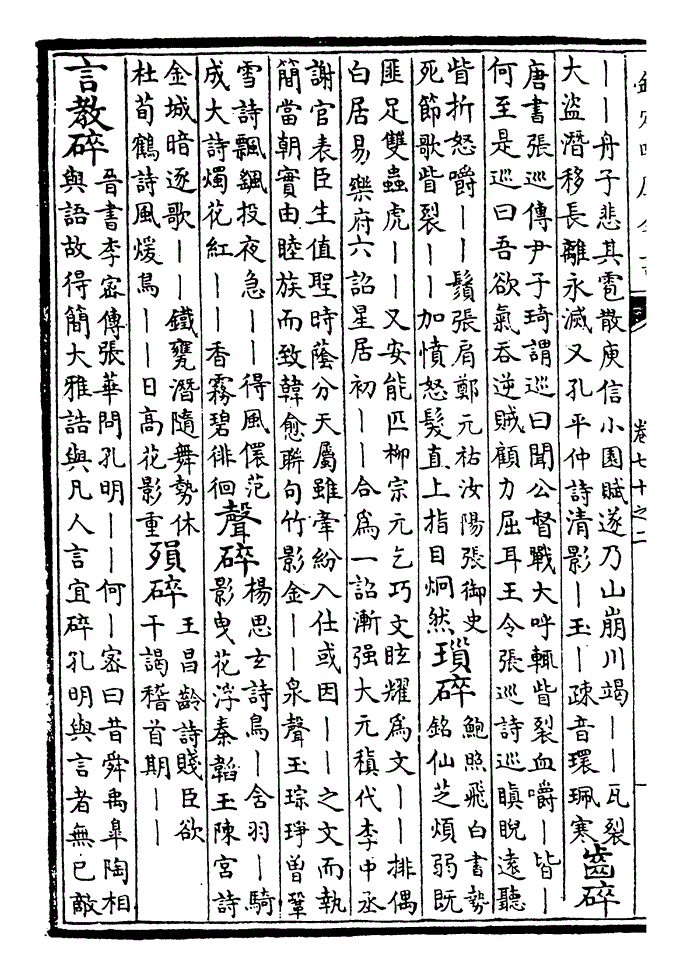 卷七十之二
丨丨舟子悲其雹散庾信小園賦遂乃山崩川竭丨丨瓦裂
大盜潛移長離永滅又孔平仲詩清影丨玉丨疎音環珮寒
齒碎
唐書張巡傳尹子琦謂巡曰聞公督戰大呼輒眥裂血嚼丨皆丨
何至是巡曰吾欲氣吞逆賊顧力屈耳王令張巡詩巡瞋睨遠聽
眥折怒嚼丨丨鬚張肩鄭元祐汝陽張御史
死節歌眥裂丨丨加憤怒髮直上指目炯然
瑣碎
鮑照飛白書勢
銘仙芝煩弱既
匪足雙蟲虎丨丨又安能匹柳宗元乞巧文眩耀為文丨丨排偶
白居易樂府六詔星居初丨丨合為一詔漸强大元稹代李中丞
謝官表臣生值聖時蔭分天屬雖葦紛入仕或因丨丨之文而執
簡當朝實由睦族而致韓愈聯句竹影金丨丨泉聲玉琮琤曾鞏
雪詩飄颻投夜急丨丨得風儇范
成大詩燭花紅丨丨香霧碧徘徊
聲碎
楊思玄詩鳥丨含羽丨騎
影曳花浮秦韜玉陳宮詩
金城暗逐歌丨丨鐵甕潛隨舞勢休
杜荀鶴詩風煖鳥丨丨日高花影重
殞碎
王昌齡詩賤臣欲
干謁稽首期丨丨
言教碎
晉書李密傳張華問孔明丨丨何丨密曰昔舜禹臯陶相
與語故得簡大雅誥與凡人言宜碎孔明與言者無已敵